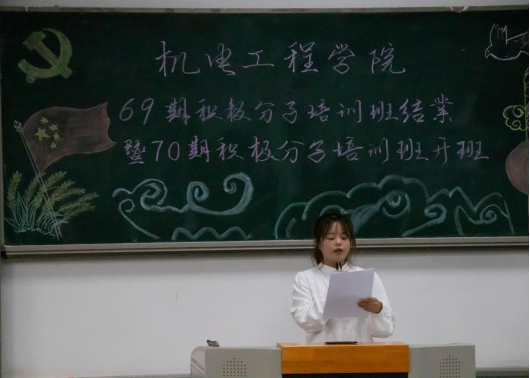 机电工程学院
69期积极分子培训班结業
暨70期积极分子培训班开班